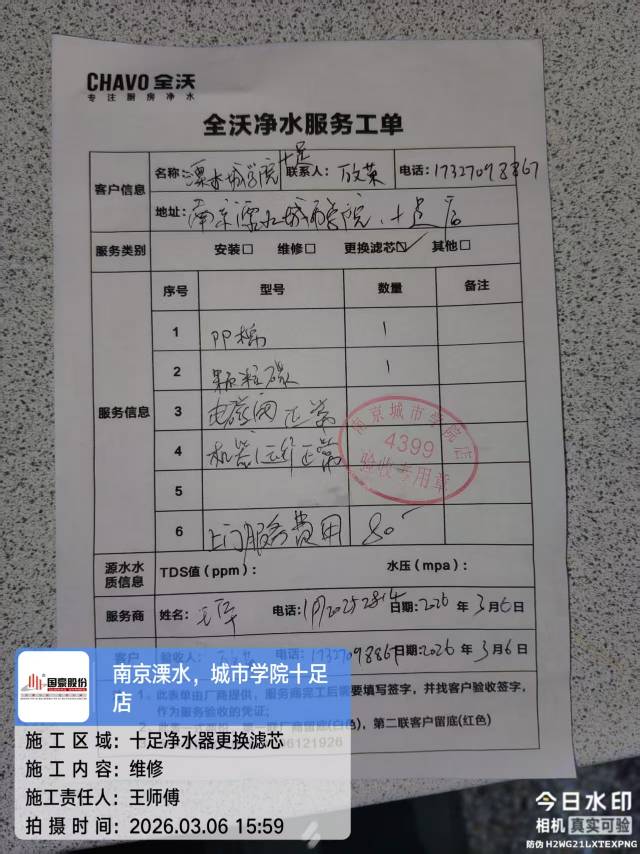 CHAVO 全沃
专注厨房净水
全沃净水服务工单
客户信息
名称: 溧水城学院十足 联系人: 电话: 17327098867
地址: 南京溧水城市学院、十足店
服务类别 安装□ 维修□ 更换滤芯☑ 其他□
服务信息
序号 型号 数量 备注
1 PP棉 1
2 颗粒碳 1
3 电磁阀正常
4 机器运作正常
5
6 上门服务费用 80
南京城市学院店
4399
验收专用章
源水水质信息 TDS值（ppm）: 水压（mpa）:
服务商 姓名: 王军 电话: 日期: 2026 年 3 月 6 日
客户 验收人: 电话: 17327098867 日期: 2026 年 3 月 6 日
1、此表单由厂商提供，服务商完工后需要填写签字，并找客户验收签字，
作为服务验收的凭证；
厂商留底(白色)，第二联客户留底(红色)
06121926
国豪股份
南京溧水，城市学院十足店
施工区域: 十足净水器更换滤芯
施工内容: 维修
施工责任人: 王师傅
拍摄时间: 2026.03.06 15:59
今日水印
相机 真实可验
防伪 H2WG21LXTEXPNG